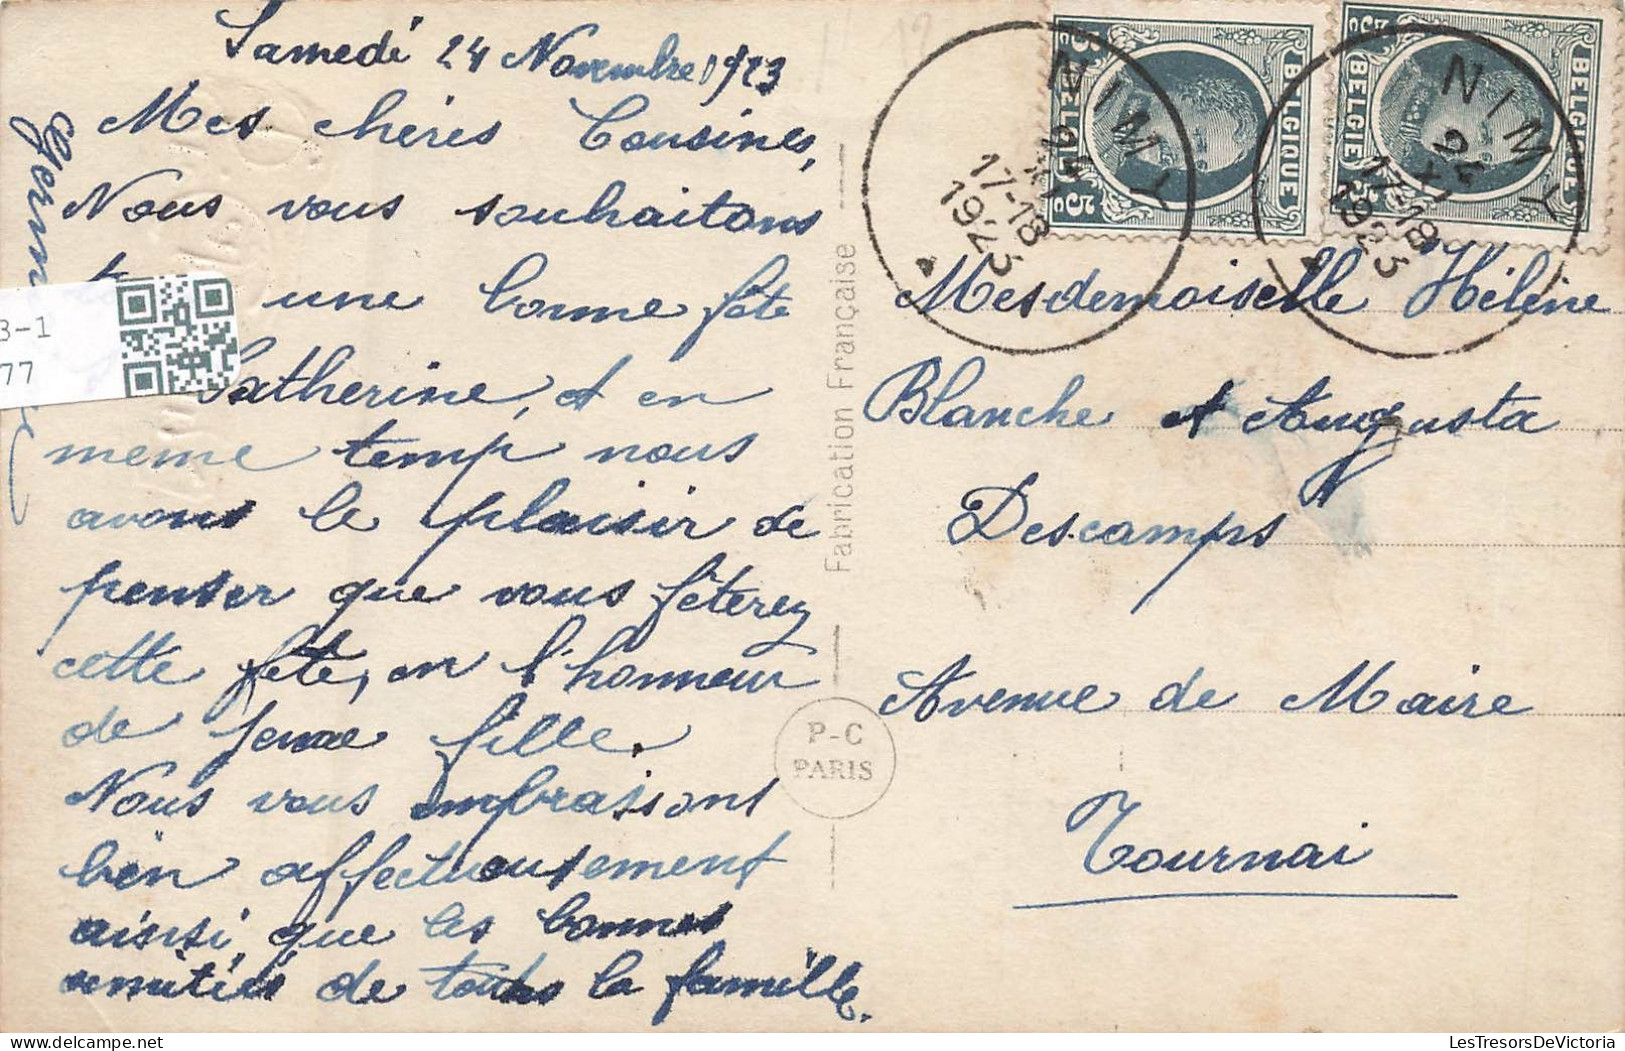 Samedi 24 Novembre 1923
Mes chères Cousines,
Nous vous souhaitons
une bonne fête
Catherine, et en
meme temp nous
avons le plaisir de
penser que vous fêterez
cette fête, en l'honneur
de jeune fille.
Nous vous embrassons
bien affectueusement
ainsi que les bonnes
amitiés de toute la famille.
3-1
77
Fabrication Française
P-C
PARIS
BELGIQUE
BELGIË
5c
5c
BELGIQUE
BELGIE
5c
NIMY
24
XI
17-18
1923
NIMY
24
XI
17-18
1923
Mesdemoiselle Hélène
Blanche et Augusta
Descamps
Avenue de Maire
Tournai
LesTresorsDeVictoria.com